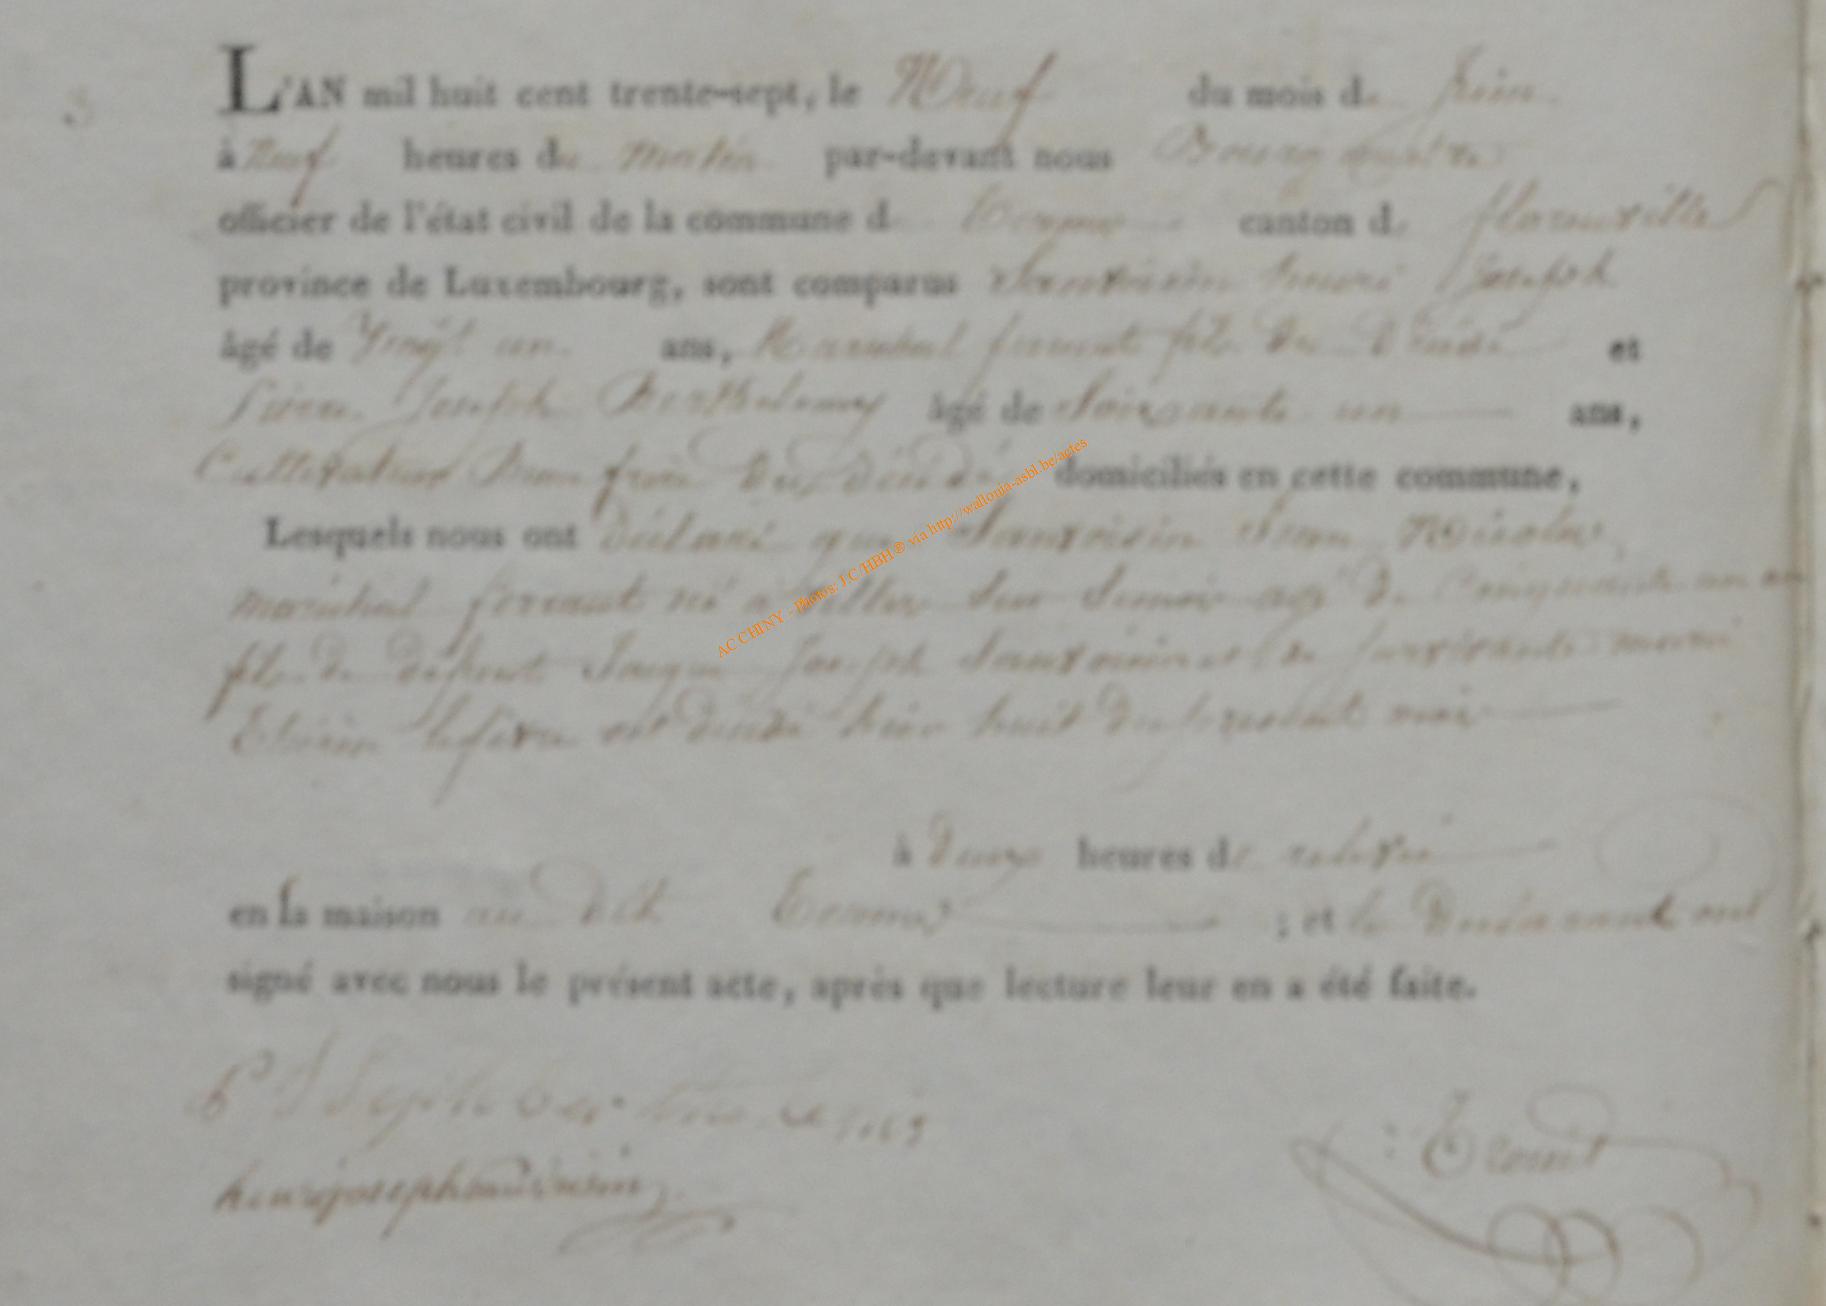 L'AN mil huit cent trente-sept, le Neuf du mois de Juin
à neuf heures du matin par-devant nous Bourgmestre
officier de l'état civil de la commune de Termes canton de florenville
province de Luxembourg, sont comparus Sauvoisin henri Joseph
âgé de Vingt un ans, Maréchal ferrant fils du Décédé et
Pierre Joseph Barthelemy âgé de Soixante un ans,
Cultivateur Beau frère du Décédé domiciliés en cette commune,
Lesquels nous ont déclaré que Sauvoisin Jean Nicolas
maréchal ferrant né a Villers Sur Semois agé de Cinquante un an
fils de défunt Jacque Joseph Sauvoisin et de survivante marie
lefevre est décédé hier huit du présent mois
à Deux heures de relevée
en sa maison au dit Termes ; et les Déclarants ont
signé avec nous le présent acte, après que lecture leur en a été faite.
henri joseph sauvoisin
AC CHINY - Photos: J.C/HBH® via http://wallonia-asbl.be/actes